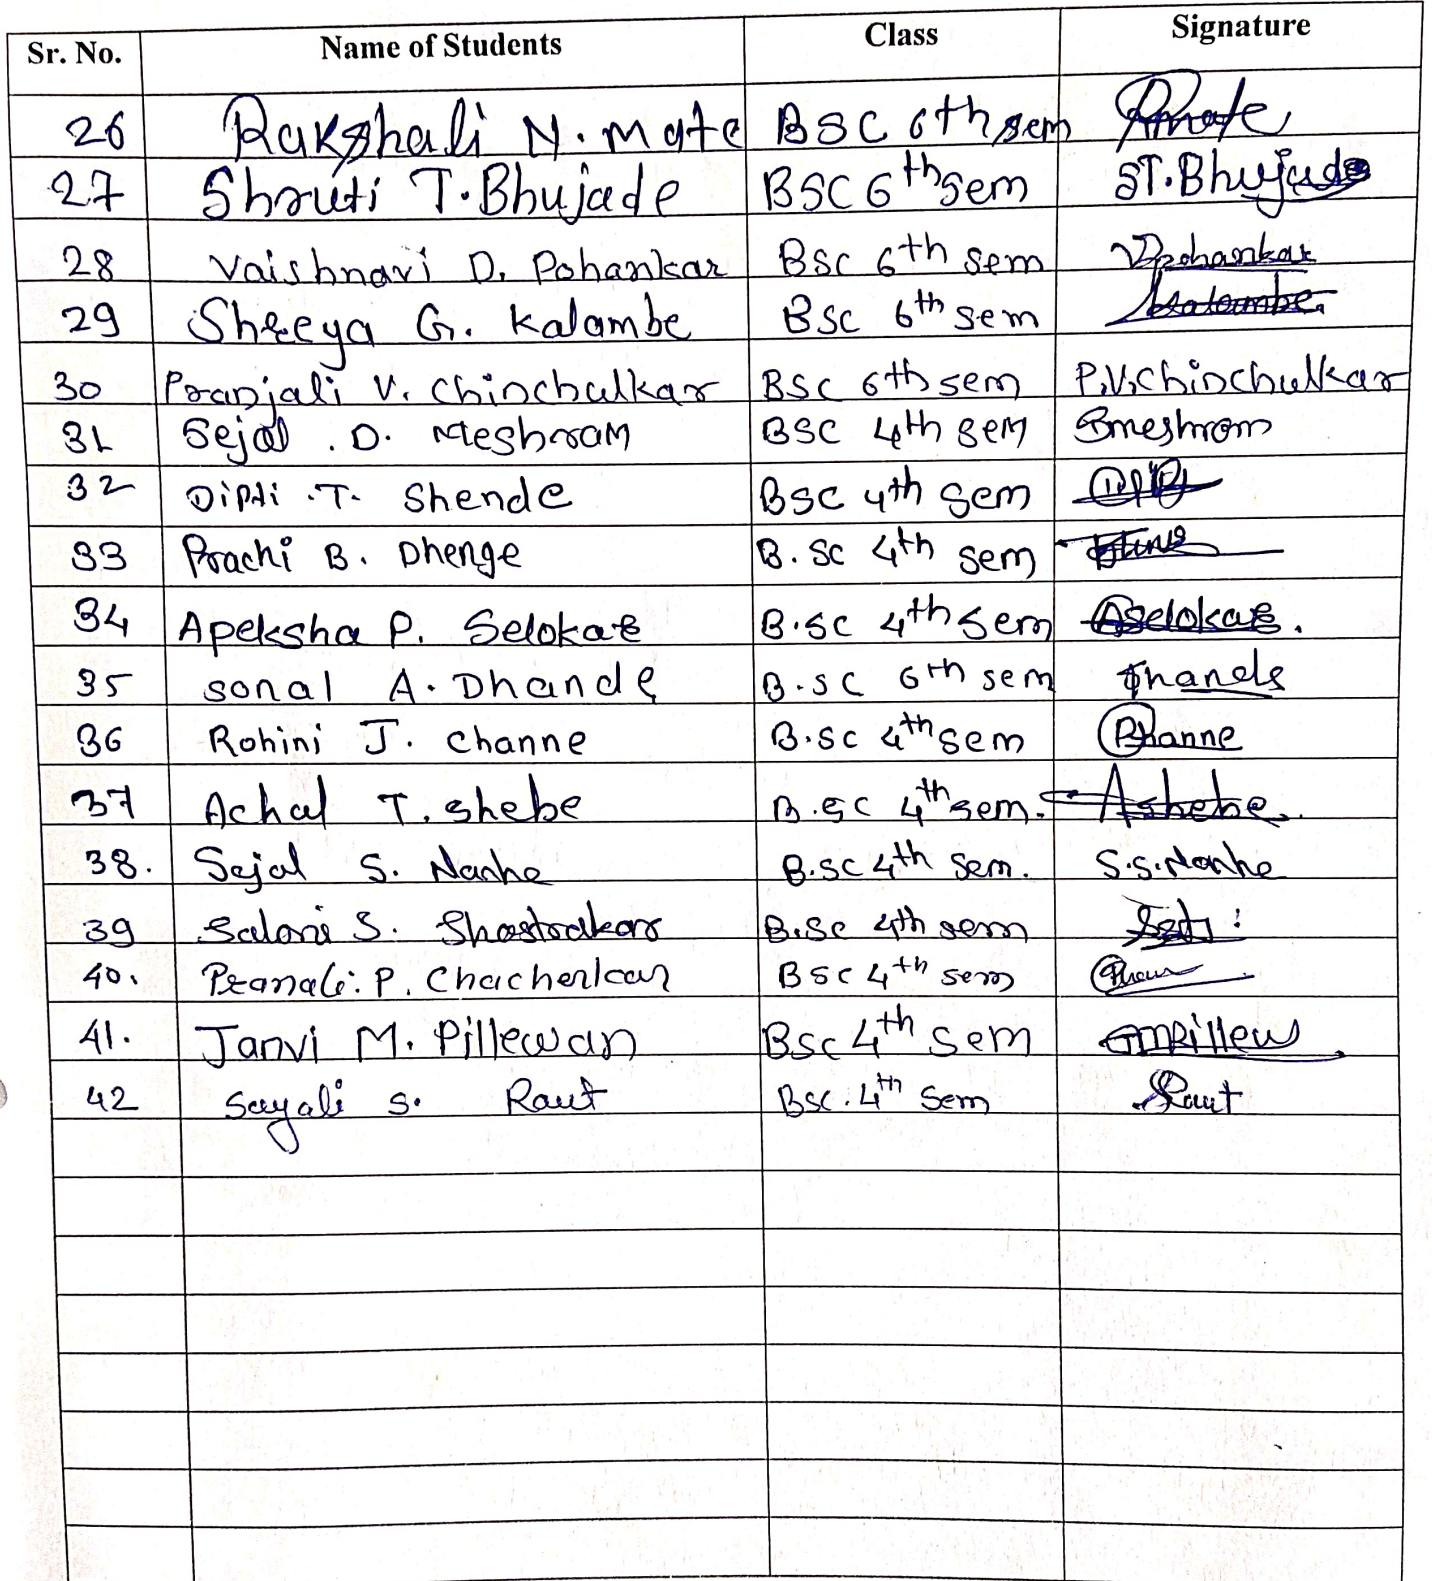 Sr. No. Name of Students Class Signature
26 Rakshali N. Mate BSC 6th sem Rmate
27 Shruti T. Bhujade BSC 6th sem ST. Bhujade
28 Vaishnavi D. Pohankar BSC 6th Sem VDpohankar
29 Shreeya G. Kalambe BSC 6th sem kalambe
30 Pranjali V. Chinchulkar BSC 6th sem P.V.Chinchulkar
31 Sejal . D. Meshram BSC 4th sem Smeshram
32 Dipti .T. Shende BSC 4th Sem
33 Prachi B. Dhenge B. Sc 4th sem
34 Apeksha P. Selokar B.SC 4th Sem Aselokar.
35 Sonal A. Dhande B.SC 6th sem
36 Rohini J. Channe B.SC 4th sem Rhanne
37 Achal T. Shebe B.SC 4th sem. Ashebe.
38. Sejal S. Nanhe B.SC 4th Sem. S.S.Nanhe
39 Saloni S. Shastrakar B.Sc 4th sem
40. Pranali. P. Chacherkar BSC 4th sem
41. Janvi M. Pillewan BSc 4th Sem JMPillew
42 Sayali S. Raut BSC. 4th Sem SRaut